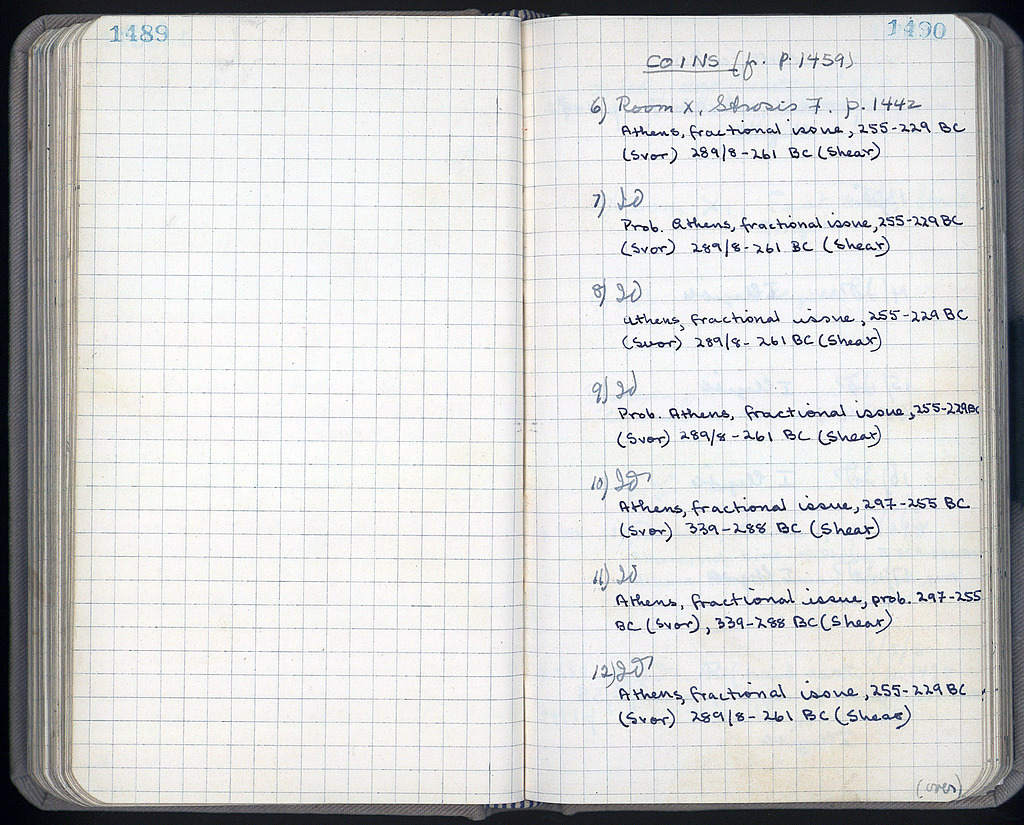 1489
1490
COINS (fr. p. 1459)
6) Room X, Strosis 7. p. 1442
Athens, fractional issue, 255-229 BC
(Svor) 289/8-261 BC (Shear)
7)
Prob. Athens, fractional issue, 255-229 BC
(Svor) 289/8-261 BC (Shear)
8)
Athens, fractional issue, 255-229 BC
(Svor) 289/8-261 BC (Shear)
9)
Prob. Athens, fractional issue, 255-229 BC
(Svor) 289/8-261 BC (Shear)
10)
Athens, fractional issue, 297-255 BC
(Svor) 339-288 BC (Shear)
11)
Athens, fractional issue, prob. 297-255
BC (Svor), 339-288 BC (Shear)
12)
Athens, fractional issue, 255-229 BC
(Svor) 289/8-261 BC (Shear)
(over)